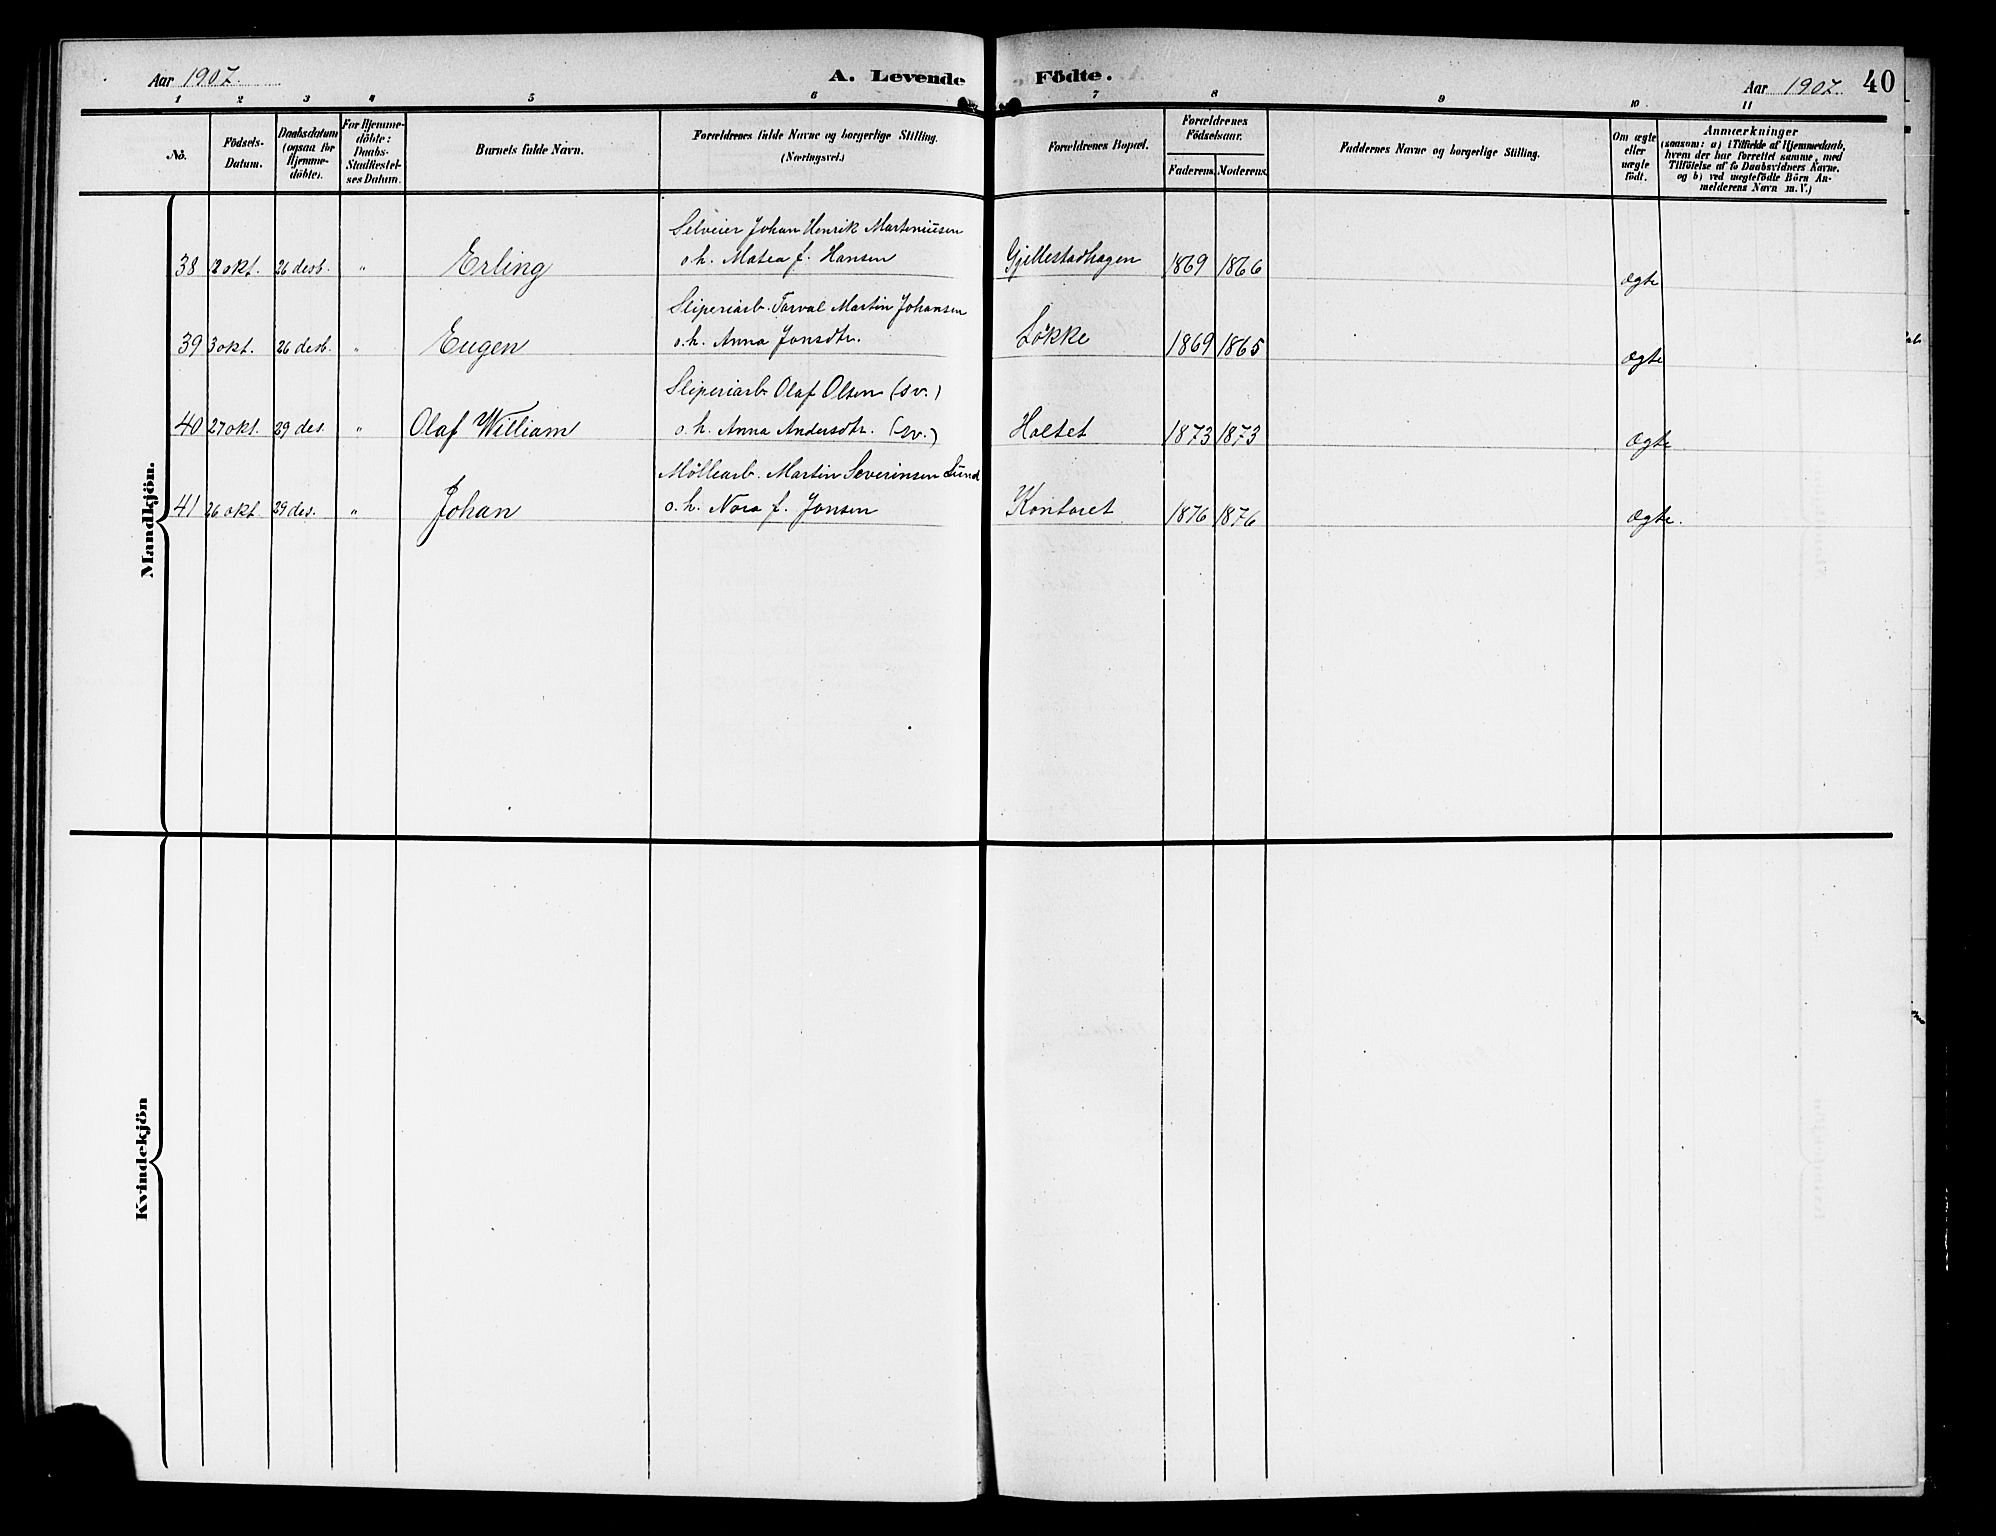 Aar 1907.
A. Levende Födte.
Aar 1907.
40
1 2 3 4 5 6 7 8 9 10 11
No.
Födsels-
Datum.
Daabsdatum
(ogsaa for
Hjemme-
döbte).
For Hjemme-
döbte:
Daabs-
Stadfæstel-
ses Datum.
Barnets fulde Navn.
Forældrenes fulde Navne og borgerlige Stilling.
(Næringsvei.)
Forældrenes Bopæl.
Forældrenes
Födselsaar.
Faderens. Moderens.
Faddernes Navne og borgerlige Stilling.
Om ægte
eller
uægte
födt.
Anmærkninger
(saasom: a) i Tilfælde af Hjemmedaab,
hvem der har forrettet samme, med
Tilföielse af to Daabsvidners Navne.
og b) ved uægtefödte Börn An-
melderens Navn m. V.)
Mandkjön.
Selveier Johan Henrik Marteniusen
38 12 okt. 26 desb. " Erling o. h. Matea f. Hansen Gjellestadhagen 1869 1866 Ægte
Sliperiarb. Torval Martin Johansen
39 3 okt. 26 desb. " Eugen o. h. Anna Jonsdtr. Løkke 1869 1865 Ægte
Sliperiarb Olaf Olsen (sv.)
40 27 okt. 29 des. " Olaf William o. h. Anna Andersdtr. (sv.) Holtet 1873 1873 Ægte
Møllearb. Martin Severinsen Lund
41 26 okt 29 des. " Johan o. h. Nora f. Jonsen Kontoret 1876 1876 Ægte.
Kvindekjön